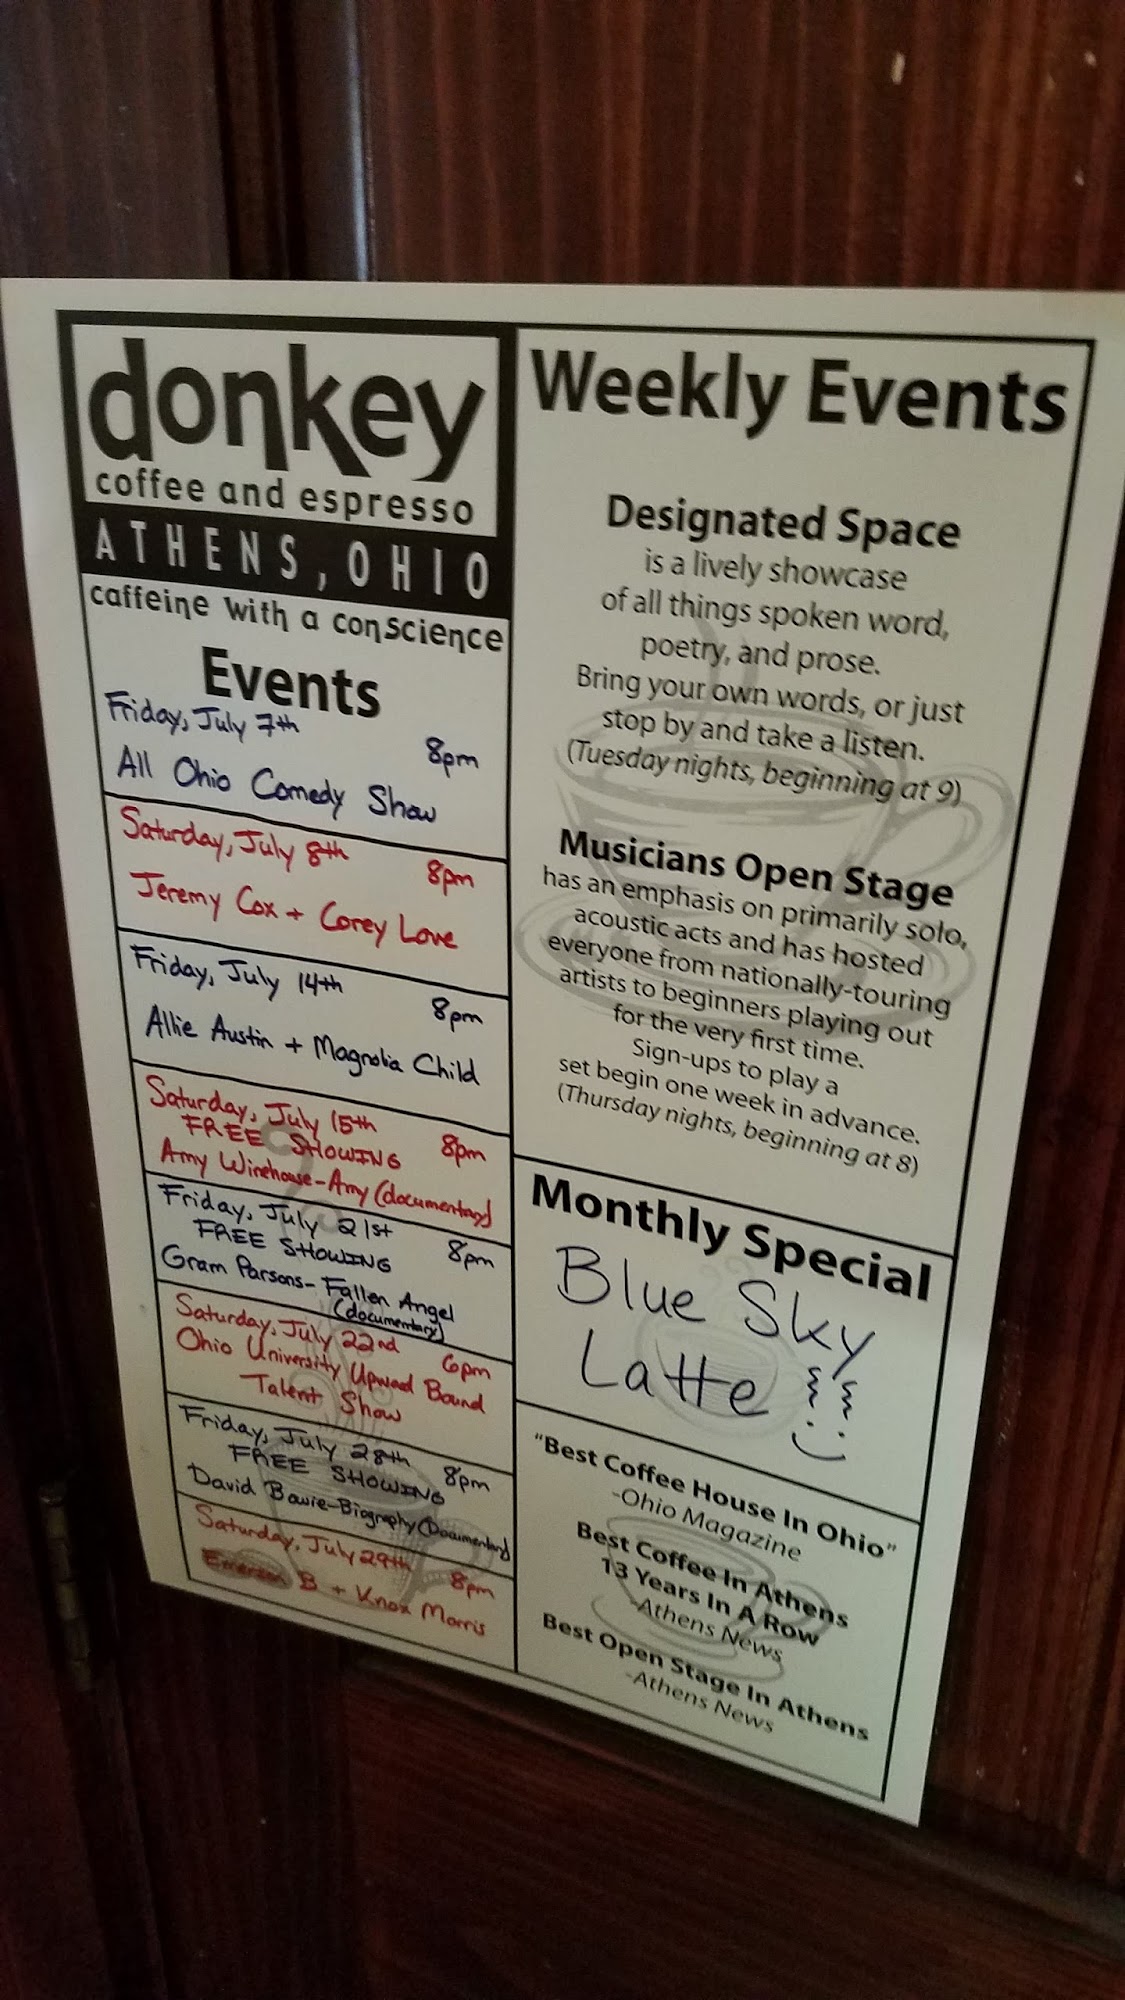 donkey
coffee and espresso
ATHENS, OHIO
caffeine with a conscience
Events
Friday, July 7th
8pm
All Ohio Comedy Show
Saturday, July 8th
8pm
Jeremy Cox + Corey Love
Friday, July 14th
8pm
Allie Austin + Magnolia Child
Saturday, July 15th
FREE SHOWING 8pm
Amy Winehouse-Amy (documentary)
Friday, July 21st
FREE SHOWING 8pm
Gram Parsons-Fallen Angel
(documentary)
Saturday, July 22nd 6pm
Ohio University Upward Bound
Talent Show
Friday, July 28th 8pm
FREE SHOWING
David Bowie-Biography (Documentary)
Saturday, July 29th 8pm
Emerson B + Knox Morris
Weekly Events
Designated Space
is a lively showcase
of all things spoken word,
poetry, and prose.
Bring your own words, or just
stop by and take a listen.
(Tuesday nights, beginning at 9)
Musicians Open Stage
has an emphasis on primarily solo,
acoustic acts and has hosted
everyone from nationally-touring
artists to beginners playing out
for the very first time.
Sign-ups to play a
set begin one week in advance.
(Thursday nights, beginning at 8)
Monthly Special
Blue Sky
Latte
"Best Coffee House In Ohio"
-Ohio Magazine
Best Coffee In Athens
13 Years In A Row
-Athens News
Best Open Stage In Athens
-Athens News